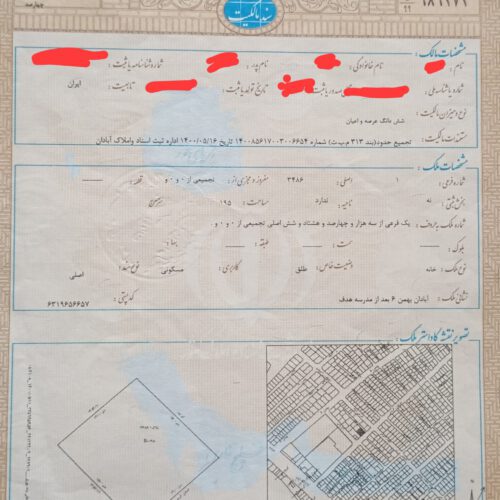 سند مالکیت
مشخصات مالک :
نام : نام خانوادگی : نام پدر : شماره شناسنامه یا ثبت :
شماره یا شناسه ملی : محل صدور یا ثبت تاریخ تولد یا ثبت : تابعیت : ایران
نوع و میزان مالکیت : شش دانگ عرصه و اعیان
مستندات مالکیت : تجمیع حدود(بند ۳۱۳ م.ب.ث) شماره ۱۴۰۰۸۵۶۱۷۰۰۳۰۰۶۶۵۴ تاریخ ۱۴۰۰/۰۵/۱۶ اداره ثبت اسناد واملاک آبادان
مشخصات ملک :
شماره فرعی : ۱ اصلی : ۳۴۸۶ مفروز و مجزی از : تجمیعی از ۰ و ۰ و قطعه :
بخش ثبتی : نه ناحیه : ندارد مساحت : ۱۹۵ مترمربع
شماره ملک به حروف : یک فرعی از سه هزار و چهارصد و هشتاد و شش اصلی تجمیعی از ۰ و ۰ و
بلوک : سمت : طبقه :
نوع ملک : خانه وضعیت خاص : طلق کاربری : مسکونی نوع سند : اصلی
نشانی ملک : آبادان بهمن ۶ بعد از مدرسه هدف کد پستی : ۶۳۱۹۶۵۶۶۵۷
تصویر نقشه کاداستر ملک :